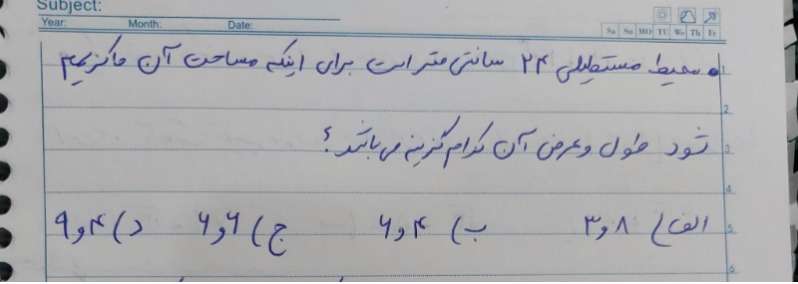 Subject:
Year: Month: Date:
Sa Su MO TU We Th Fr
محیط مستطیلی ۲۴ سانتی متر است برای اینکه مساحت آن ماکزیمم
شود طول و عرض آن کدام گزینه می باشد؟
الف) ۸ و ۳ ب) ۴ و ۶ ج) ۶ و ۶ د) ۴ و ۹
1
2
3
4
5
6